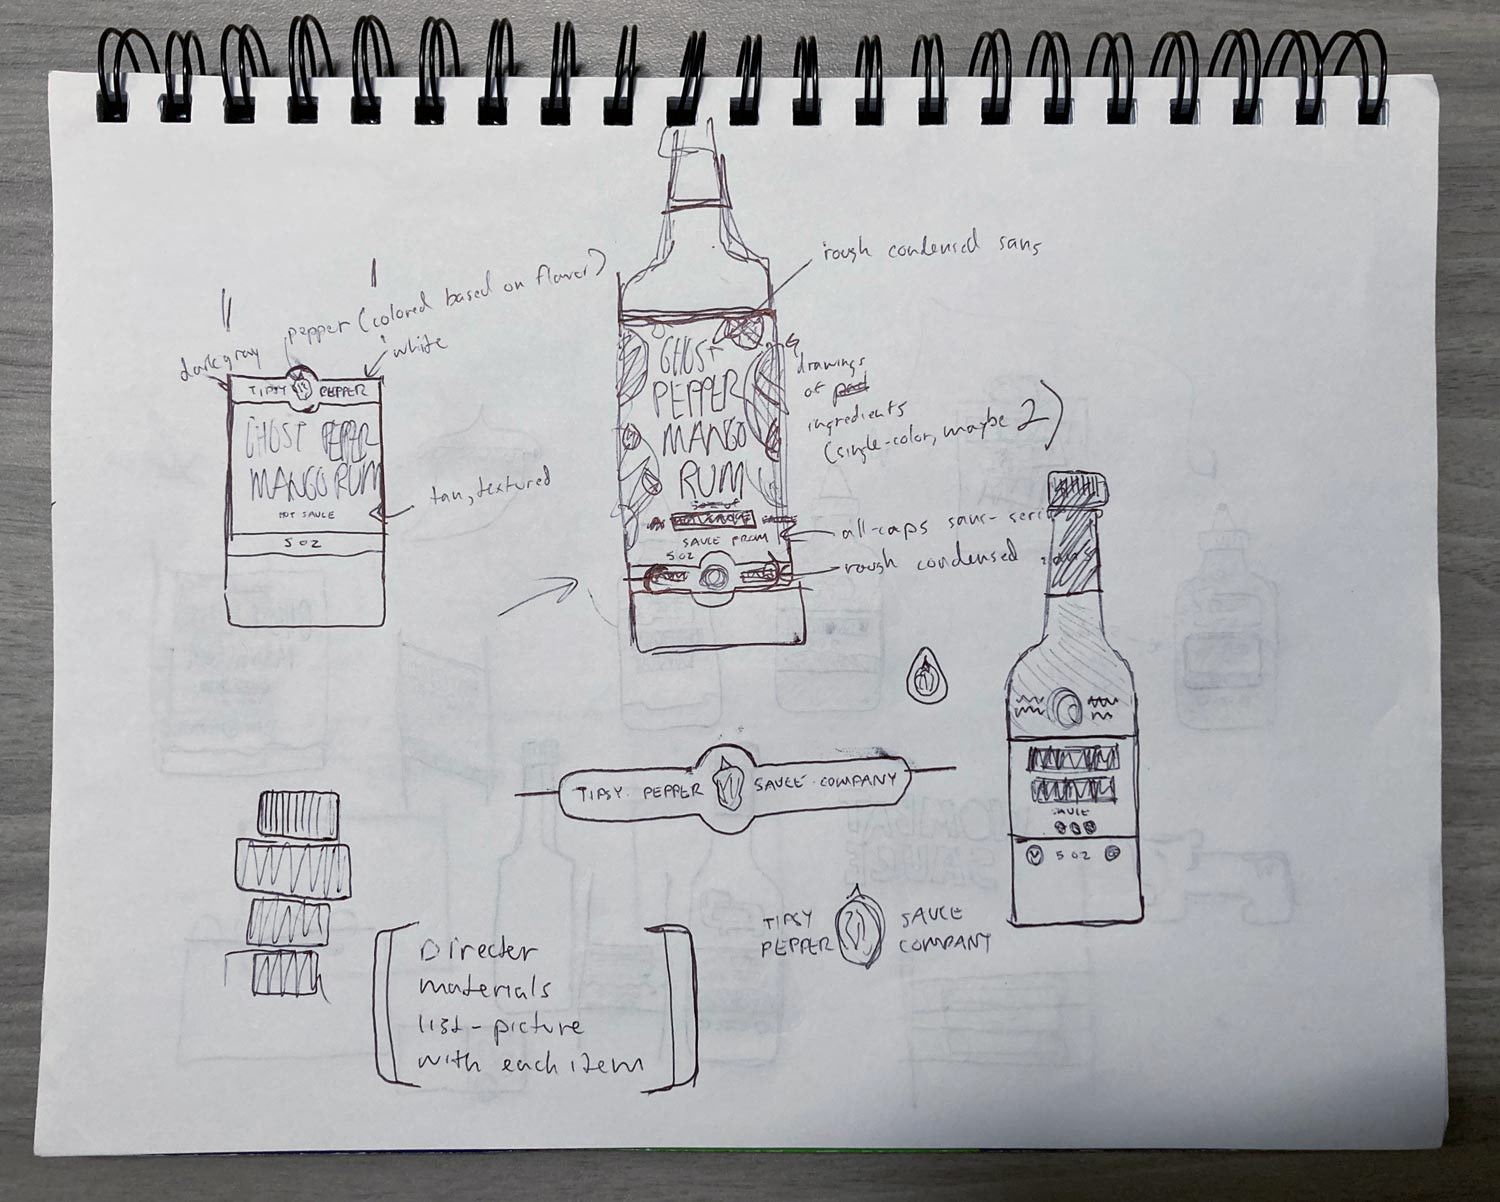 dark gray
pepper (colored based on flavor)
white
TIPSY PEPPER
GHOST PEPPER
MANGO RUM
HOT SAUCE
5 OZ
tan, textured
rough condensed sans
GHOST
PEPPER
MANGO
RUM
SAUCE FROM
5 OZ
drawings
of
ingredients
(single-color, maybe 2)
all-caps sans-serif
rough condensed sans
TIPSY PEPPER SAUCE COMPANY
SAUCE
5 OZ
TIPSY PEPPER
SAUCE COMPANY
Directer
materials
list - picture
with each item